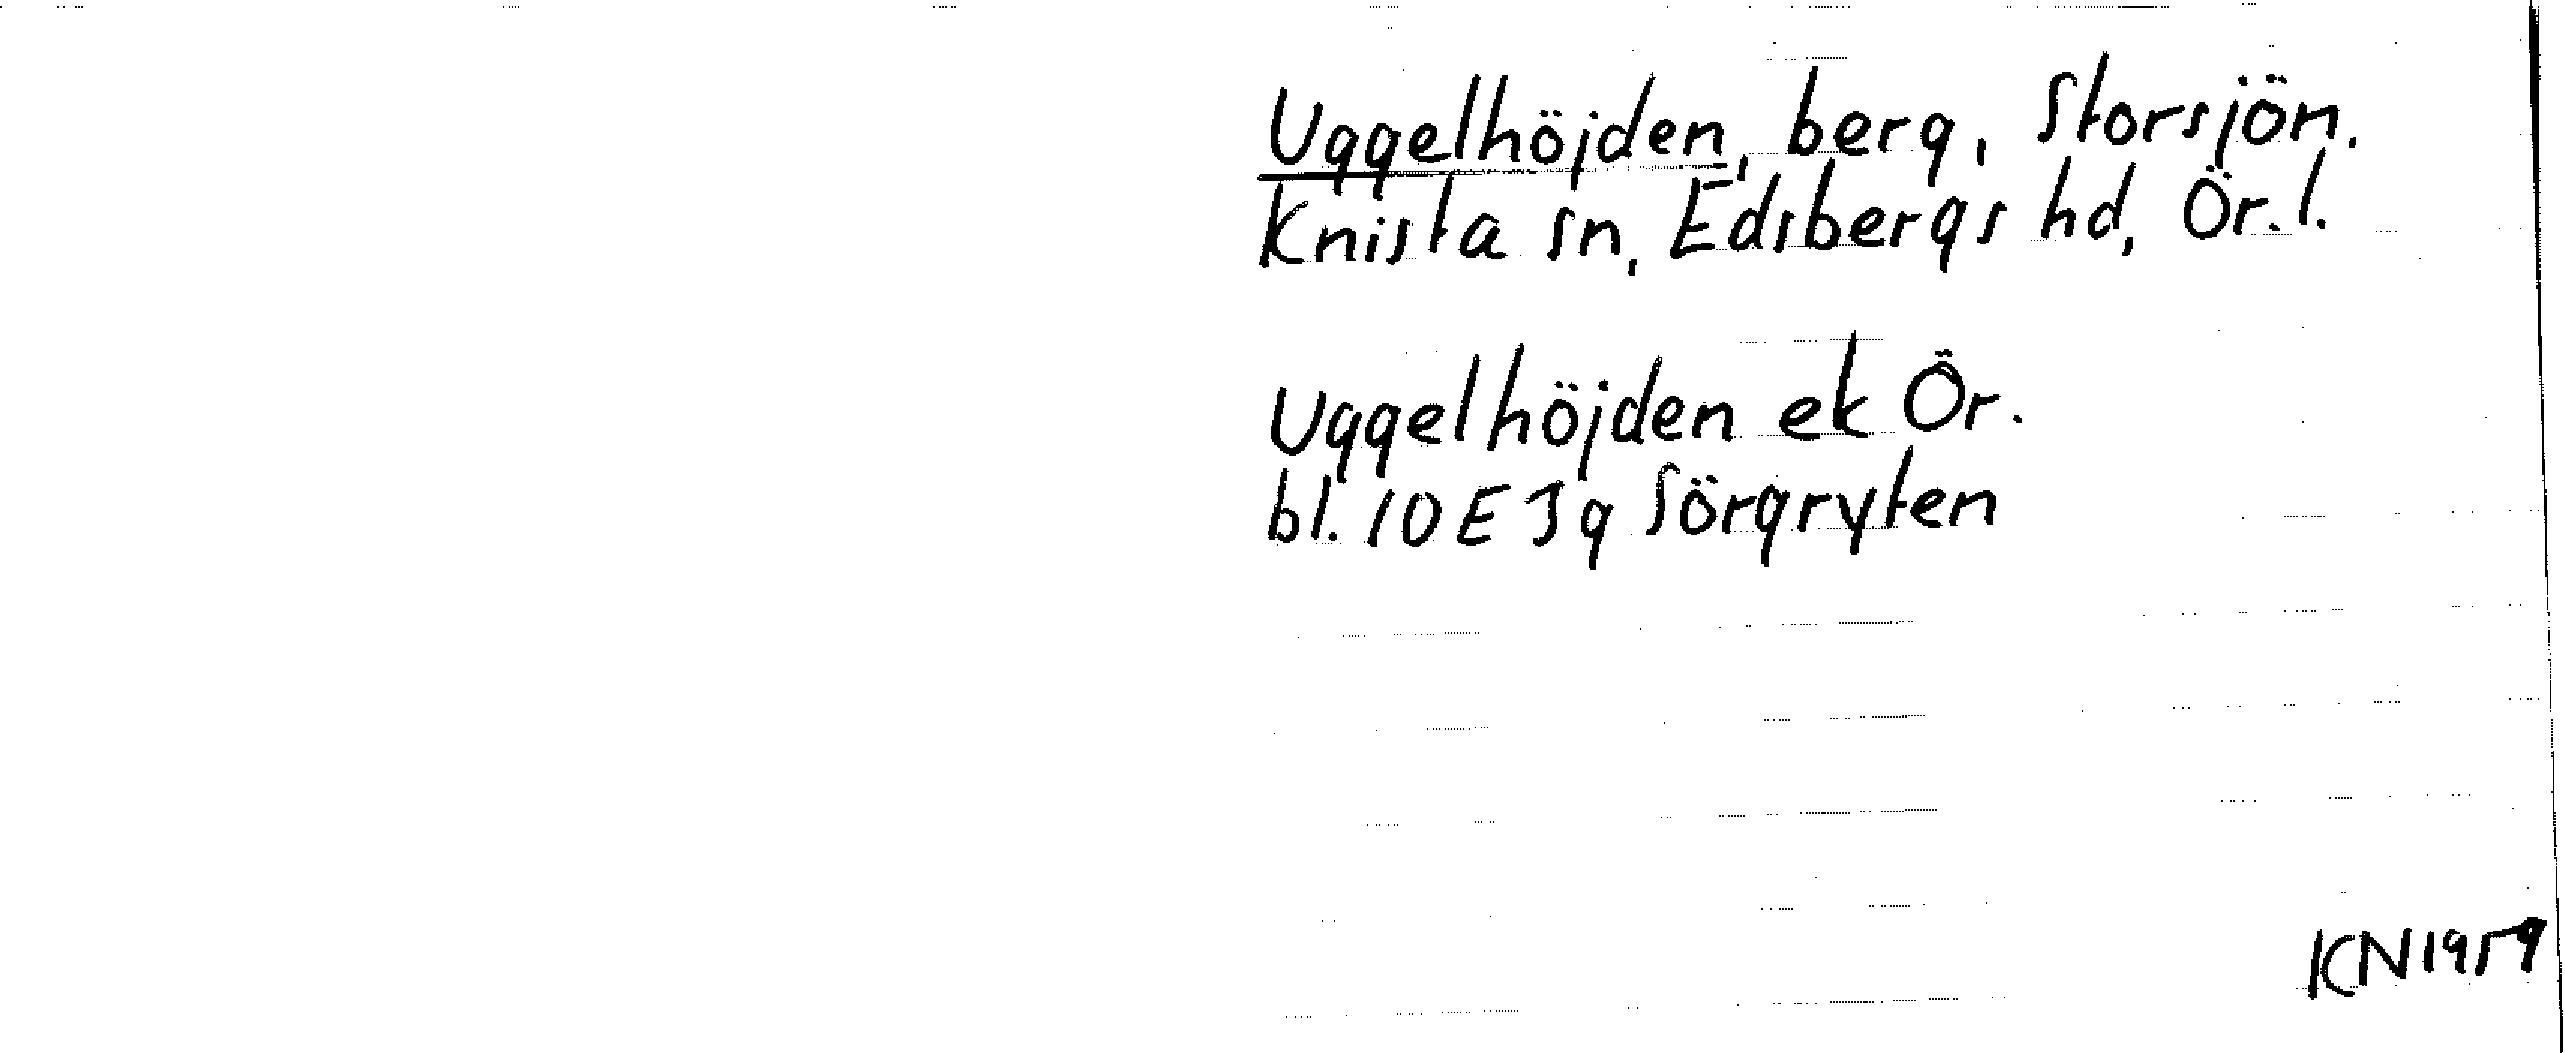 Uggelhöjden, berg, Storsjön.
Knista sn, Edsbergs hd, Ör. l.
Uggelhöjden ek Ör.
bl. 10 E Jg Sörgryten
KN 1959